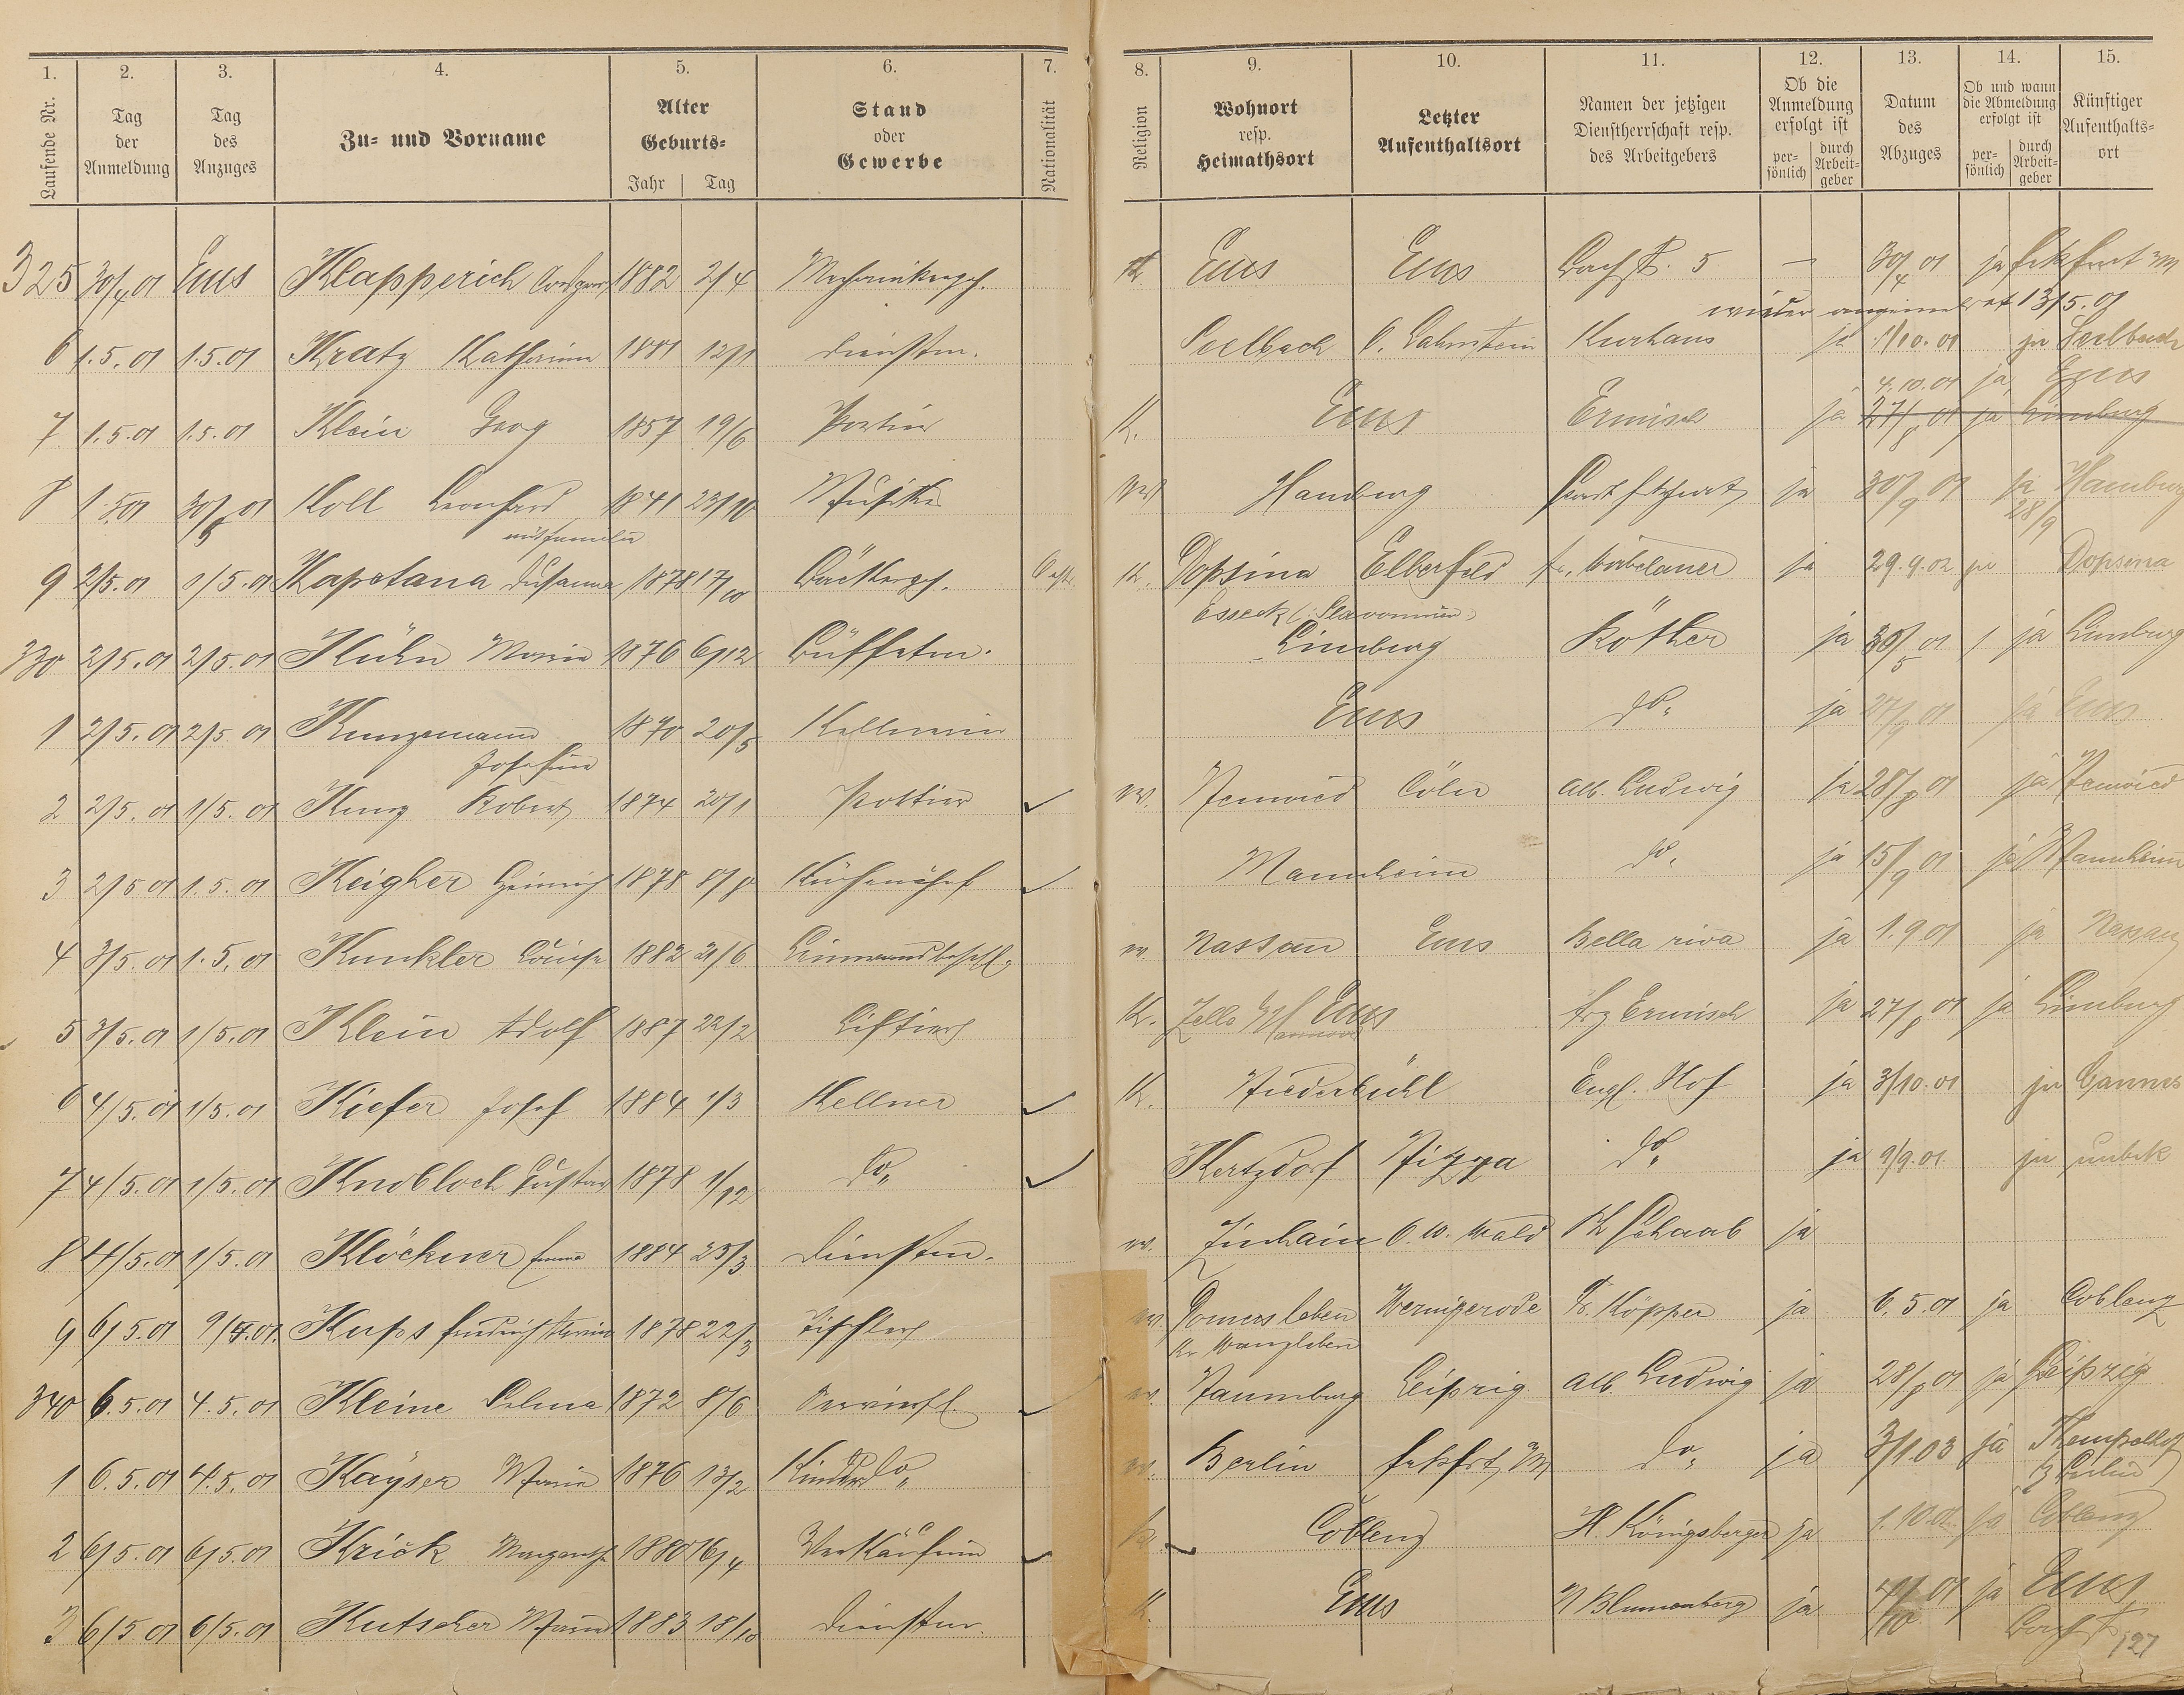 1. 2. 3. 4. 5. 6. 7. 8. 9. 10. 11. 12. 13. 14. 15.
Laufende Nr.
Tag der Anmeldung
Tag des Anzuges
Zu- und Vorname
Alter
Geburts-
Jahr Tag
Stand oder Gewerbe
Nationalität
Religion
Wohnort resp. Heimathsort
Letzter Aufenthaltsort
Namen der jetzigen Dienstherrschaft resp. des Arbeitgebers
Ob die Anmeldung erfolgt ist
persönlich durch Arbeitgeber
Datum des Abzuges
Ob und wann die Abmeldung erfolgt ist
persönlich durch Arbeitgeber
Künftiger Aufenthaltsort
325 30/4 01 Ems Klapperich 1882 2/4 K. Ems Ems Bachstr. 5 — 30/4 01 ja Frkfurt a/M
wieder angemeldet 13/5.01
6 1.5.01 1.5.01 Kratz Katharina 1881 12/1 Dienstm. Seelbach O. Lahnstein Kurhaus ja 1/10.01 ja Seelbach
4.10.01 ja Ems
7 1.5.01 1.5.01 Klein Georg 1857 19/6 Portier K. Ems Ermisch ja 27/8 01 ja Limburg
8 1.5.01 30/4 01 Koll Leonhard 1841 23/10 Musiker Hamburg ja 30/9 01 ja 28/9 Hamburg
mit Familie
9 2/5.01 1/5.01 Kapetana Dusanna 1878 17/10 Bäckergh. Oestr. K. Dopsina Elberfeld ja 29.9.02 ja Dopsina
Esseck (Slavonnien)
330 2/5.01 2/5.01 Kühn Maria 1876 6/12 Büffetm. Limburg Köther ja 30/5 01 ja Limburg
1 2/5.01 2/5 01 Kunzemann 1870 20/5 Kellnerin Ems do. ja 27/9 01 ja Ems
Josefine
2 2/5.01 1/5.01 Kunz Robert 1874 20/1 Portier ev. Neuwied Cöln Alb. Ludwig ja 28/8 01 ja Neuwied
3 2/5 01 1.5.01 Keigher Heinrich 1878 8/8 Küchenchef Mannheim do. ja 15/9 01 ja Mannheim
4 3/5.01 1.5.01 Kunkler Louise 1882 21/6 ev. Nassau Ems Bella riva ja 1.9.01 ja Nassau
5 3/5.01 1/5.01 Klein Adolf 1887 22/2 Liftier K. Ems Frz Ermisch ja 27/8 01 ja Limburg
6 4/5.01 1/5.01 Kiefer Josef 1884 1/3 Kellner K. Niederbühl Engl. Hof ja 3/10.01 ja Cannes
7 4/5.01 1/5.01 Knobloch Gustav 1878 1/12 do. Kertzdorf Nizza do. ja 9/9.01 ja unbek
8 4/5.01 1/5.01 Klöckner Emma 1884 25/3 Dienstm. ev. Zinhain O. W. Wald Schaab ja
9 6/5.01 Kups Friedrich 1878 22/3 Tischler ev. Domersleben Wernigerode Köpper ja 6.5.01 ja Coblenz
Kr Wanzleben
340 6.5.01 4.5.01 Kleine Selma 1872 8/6 Servierfl. ev. Naumburg Leipzig Alb. Ludwig ja 28/8 01 ja Leipzig
1 6.5.01 4.5.01 Kayser Maria 1876 13/2 do. ev. Berlin Frkfrt a/M do. ja 3/1.03 ja Tempelhof
b Berlin
2 6/5.01 6/5.01 Krick Margareth 1880 16/4 Verkäuferin Coblenz H. Königsberger ja 1.10.01 ja Coblenz
3 6/5 01 6/5.01 Kutscher Maria 1883 18/10 Dienstm. K. Ems N Blumenberg ja 4/10 01 ja Ems
Bachstr
127